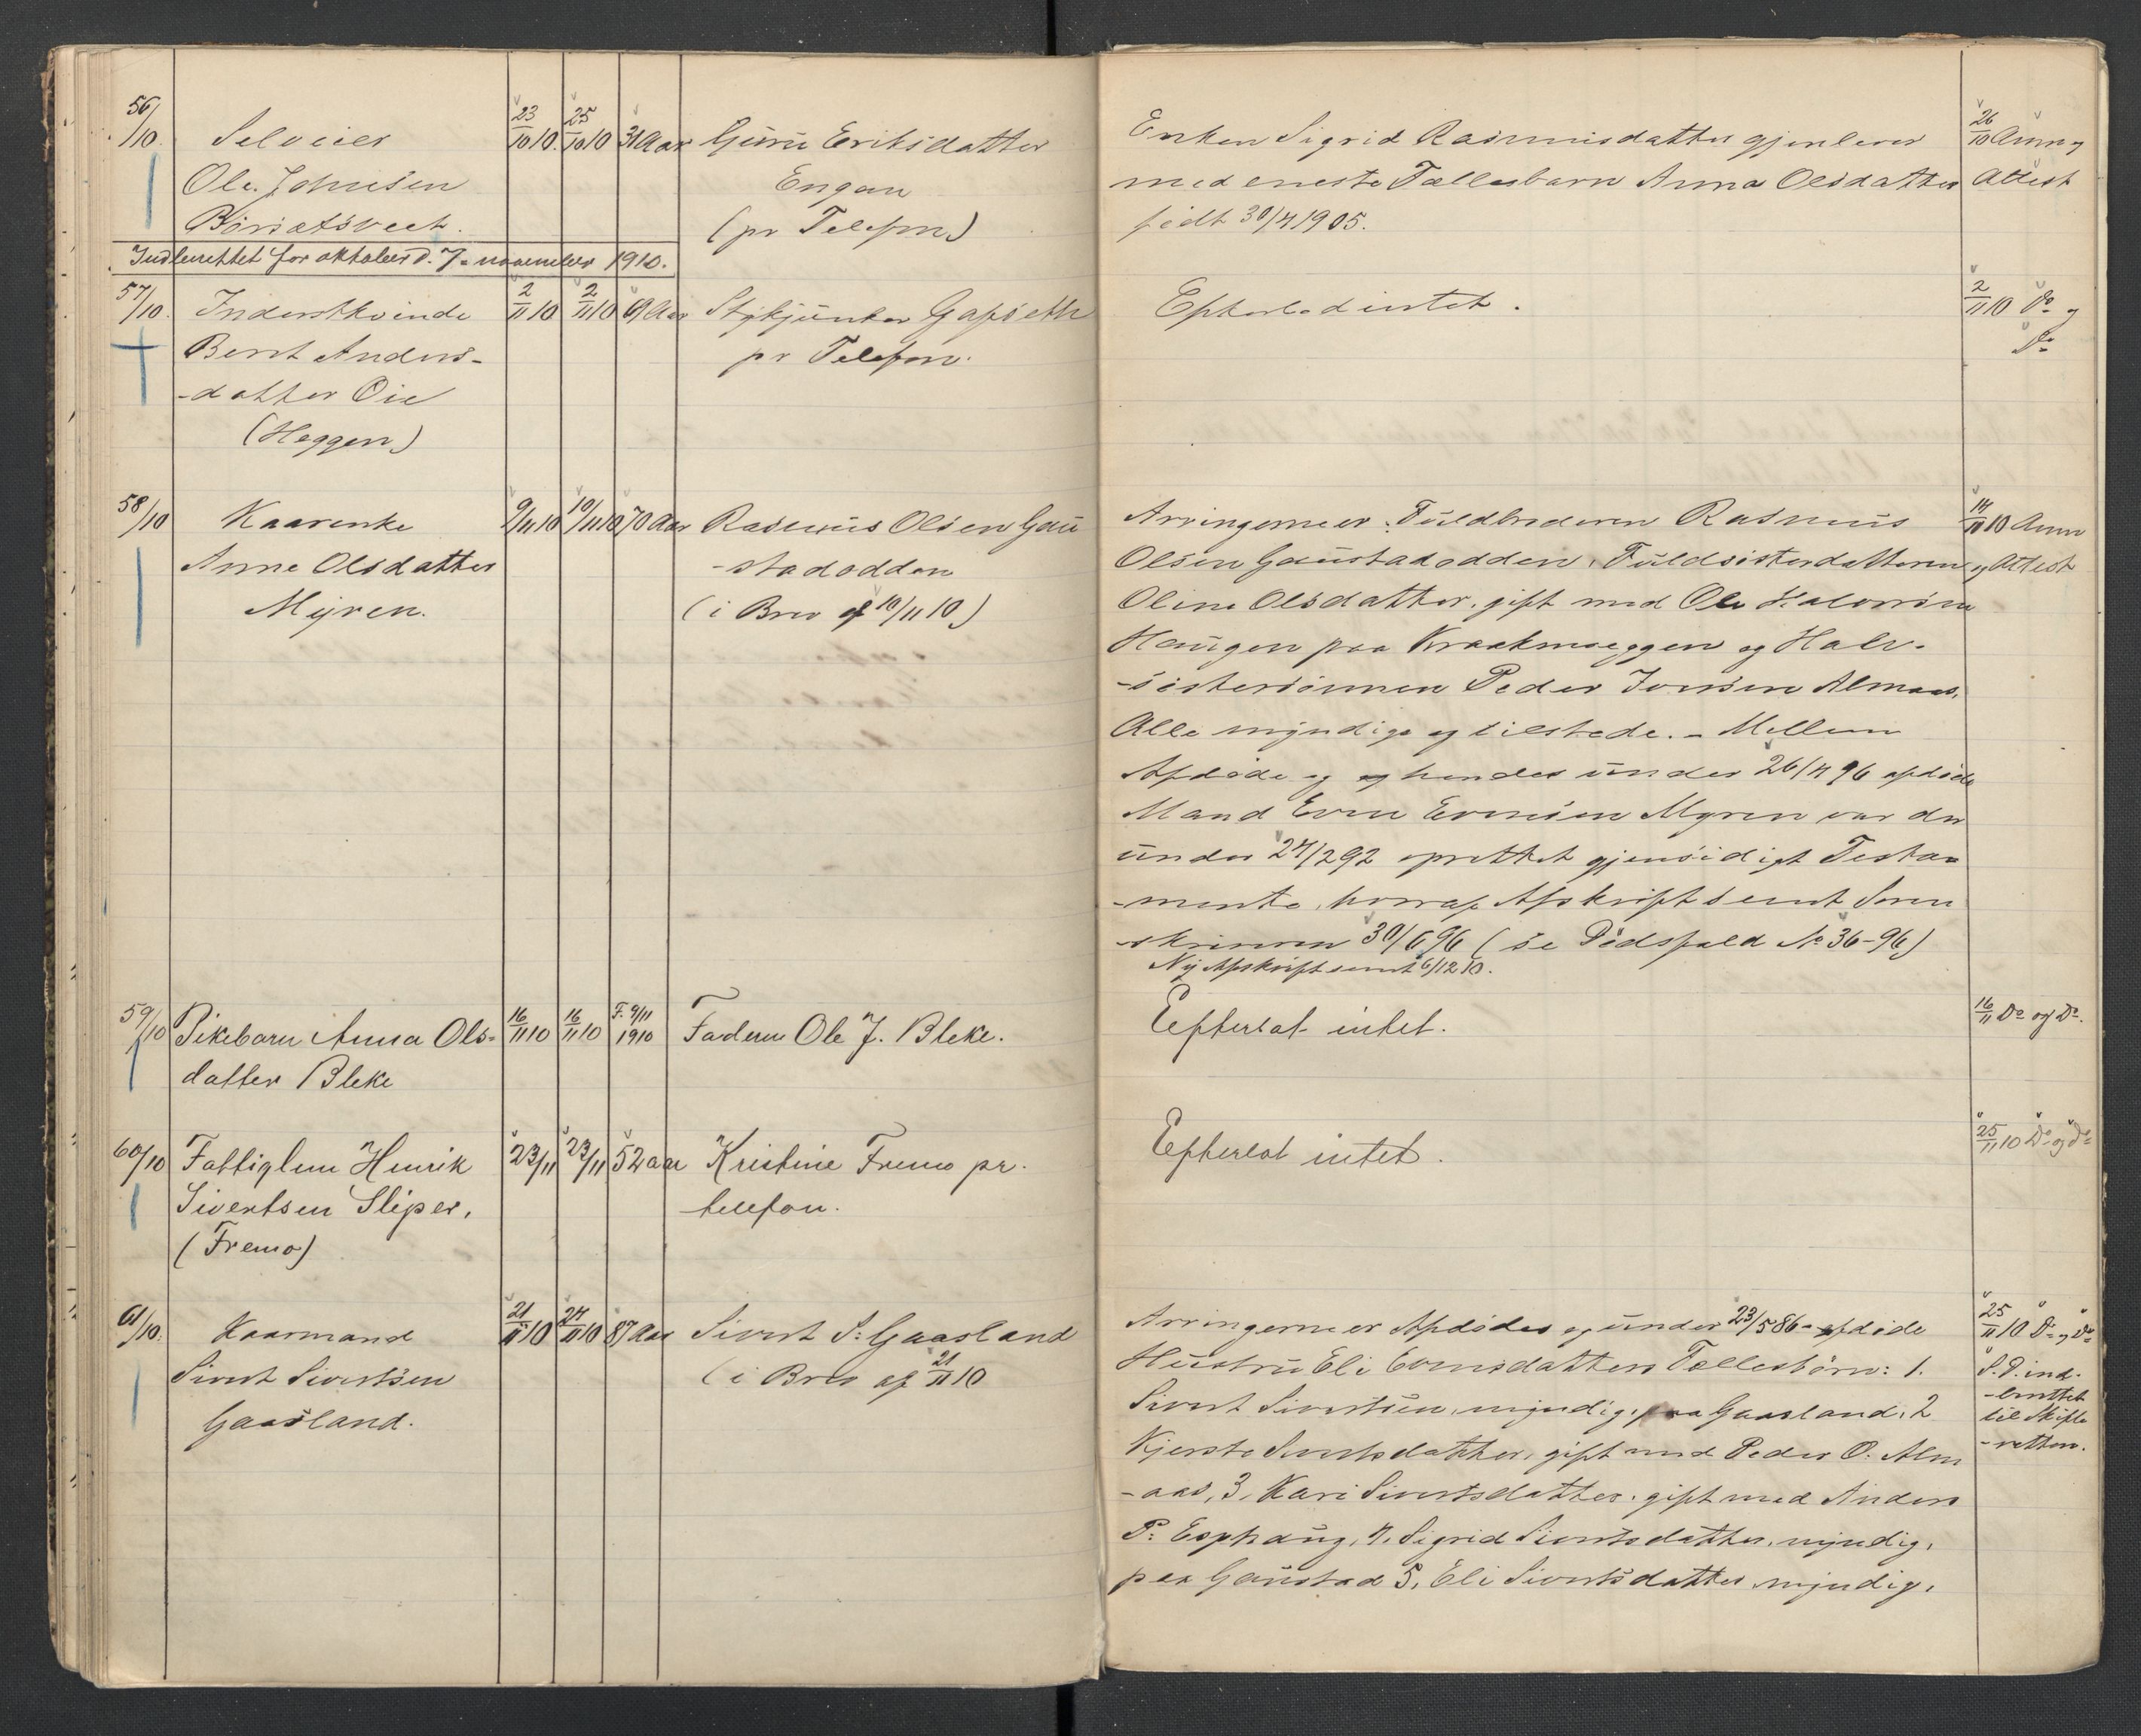 56/10. Selveier
Ole Johnsen
Börsetsveet.
23/10 10. 25/10 10 31 Aar
Guru Eriksdatter
Engan
(pr Telefon)
Enken Sigrid Rasmusdatter gjenlever
med eneste Fællesbarn Anna Olsdatter
født 30/4 1905.
26/10 Anm og
Attest
Indberettet for oktober d. 7 november 1910.
57/10. Inderstkvinde
Berit Anders-
-datter Öie
(Heggen)
2/11 10 2/11 10 69 Aar
Stykjunker Gapseth
pr Telefon.
Efterlod intet.
2/11 10 Do og
Do
58/10 Kaarenke
Anne Olsdatter
Myren.
9/11 10 10/11 10 70 Aar
Rasmus Olsen Gau
-stadodden
(i Brev af 10/11 10)
Arvingerne er: Fuldbroderen Rasmus
Olsen Gaustadodden, Fuldsösterdatteren
Oline Olsdatter, gift med Ole Halvorsen
Haugen paa Kraakmoeggen og Halv-
-søstersønnen Peder Jonsen Almaas,
Alle myndige og tilstede. - Mellem
Afdøde og og hendes under 26/4 96 afdøde
Mand Even Evensen Myren var der
under 24/2 92 oprettet gjensidigt Testa
-mente, hvoraf Afskrift sendt Soren
-skriveren 30/6 96 (se Dødsfald No 36-96)
Ny Afskrift sendt 6/12 10.
14/11 10 Anm
og Attest
59/10 Pikebarn Anna Ols-
datter Bleke
16/11 10 16/11 10 F. 9/11
1910
Faderen Ole J. Bleke.
Efterlot intet.
16/11 Do og Do.
60/10 Fattiglem Henrik
Sivertsen Sliper,
(Fremo)
23/11 23/11 52 aar
Kristine Fremo pr.
telefon.
Efterlot intet.
25/11 10 Do og Do
61/10. Kaarmand
Sivert Sivertsen
Gaasland.
21/11 10 24/11 10 87 Aar
Sivert S. Gaasland
(i Brev af 21/11 10
Arvingerne er Afdødes og under 23/5 86 - afdøde
Hustru Eli Evensdatters Fællesbörn: 1.
Sivert Sivertsen, myndig, paa Gaasland, 2
Kjersti Sivertsdatter, gift med Peder O. Alm
-aas, 3, Kari Sivertsdatter, gift med Anders
P. Esphaug, 4, Sigrid Sivertsdatter, myndig,
paa Gaustad 5, Eli Sivertsdatter myndig,
25/11 10 Do og Do
S. D. ind-
-berettet
til Skifte
-retten.